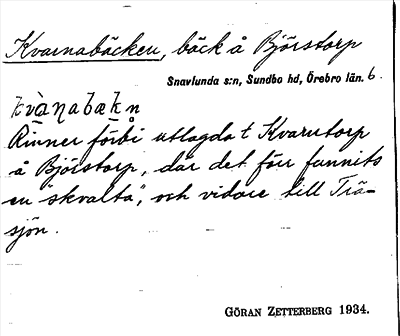 Kvarnabäcken, bäck å Björstorp
Snavlunda s:n, Sundbo hd, Örebro län. 6.
kvànabækn
Rinner förbi utlagda t Kvarntorp
å Björstorp, där det förr funnits
en "skvalta", och vidare till Trä-
sjön.
GÖRAN ZETTERBERG 1934.